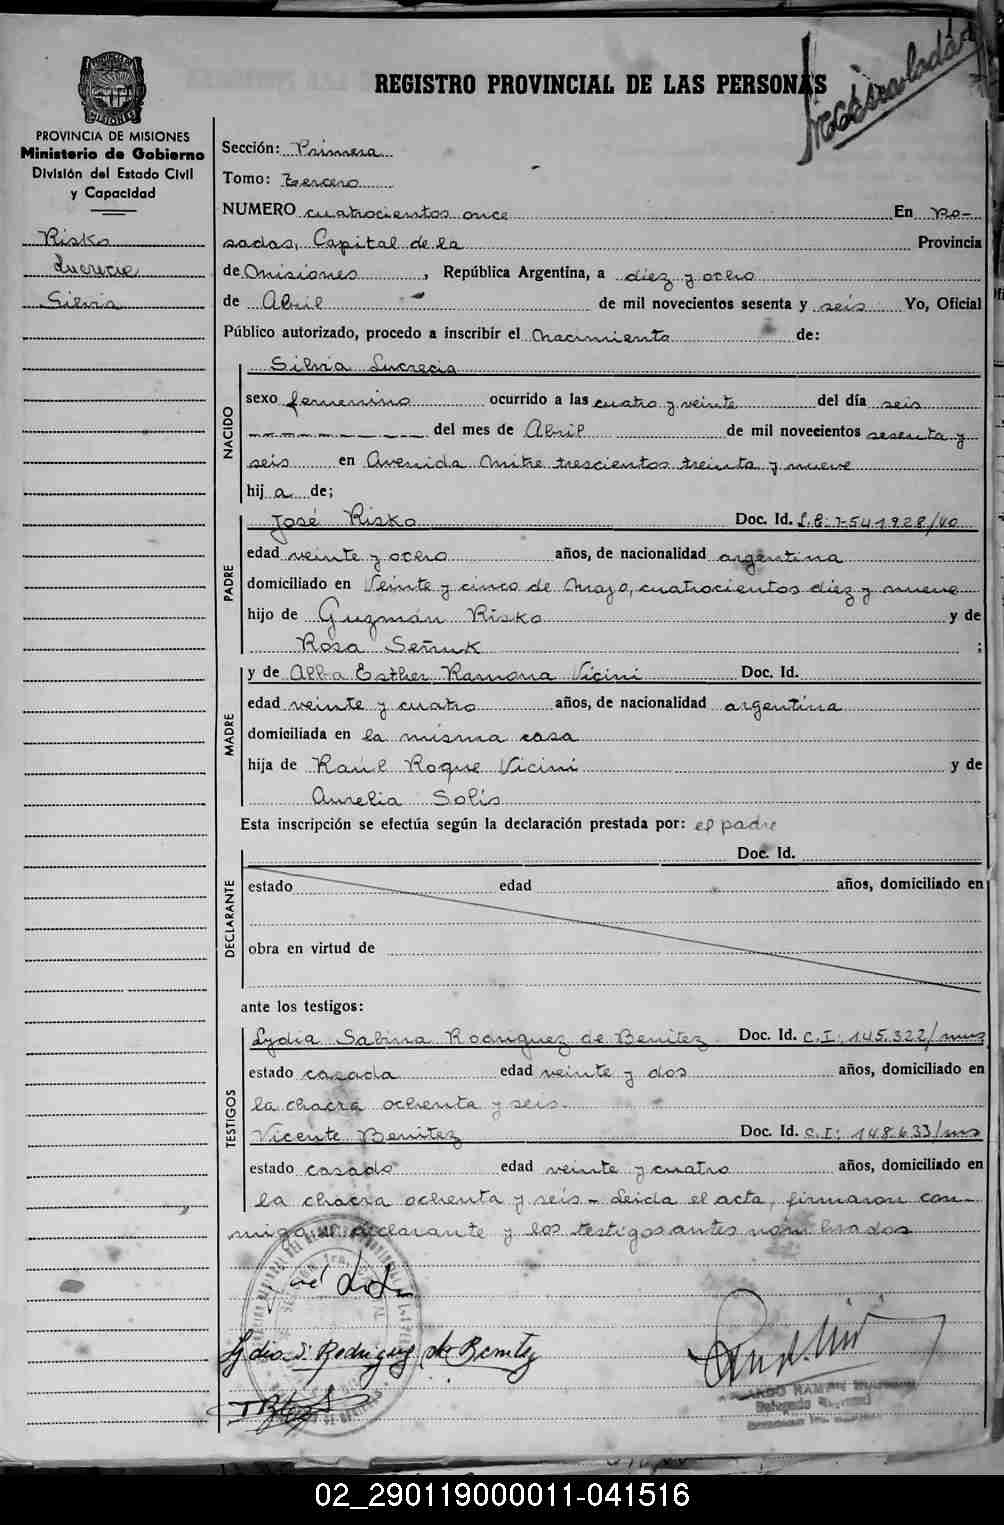 REGISTRO PROVINCIAL DE LAS PERSONAS
PROVINCIA DE MISIONES
Ministerio de Gobierno
División del Estado Civil
y Capacidad
Risko
Lucrecia
Silvia
Sección: Primera
Tomo: tercero
NUMERO cuatrocientos once En Po-
sadas, Capital de la Provincia
de Misiones, República Argentina, a diez y ocho
de Abril de mil novecientos sesenta y seis Yo, Oficial
Público autorizado, procedo a inscribir el nacimiento de:
NACIDO
Silvia Lucrecia
sexo femenino ocurrido a las cuatro y veinte del día seis
del mes de Abril de mil novecientos sesenta y
seis en Avenida Mitre trescientos treinta y nueve
hija de;
PADRE
José Risko Doc. Id. L.E: 7-541928/40
edad veinte y ocho años, de nacionalidad argentina
domiciliado en Veinte y cinco de Mayo, cuatrocientos diez y nueve
hijo de Guzmán Risko y de
Rosa Señuk ;
MADRE
y de Alba Esther Ramona Vicini Doc. Id.
edad veinte y cuatro años, de nacionalidad argentina
domiciliada en la misma casa
hija de Raúl Roque Vicini y de
Aurelia Solís
Esta inscripción se efectúa según la declaración prestada por: el padre
DECLARANTE
Doc. Id.
estado edad años, domiciliado en
obra en virtud de
ante los testigos:
TESTIGOS
Lydia Sabina Rodriguez de Benitez Doc. Id. C.I: 145.322/mns
estado casada edad veinte y dos años, domiciliado en
la chacra ochenta y seis.
Vicente Benitez Doc. Id. C.I: 148.633/mns
estado casado edad veinte y cuatro años, domiciliado en
la chacra ochenta y seis - Leida el acta, firmaron con-
migo el declarante y los testigos antes nombrados
Lydia S. Rodriguez de Benitez
02_290119000011-041516